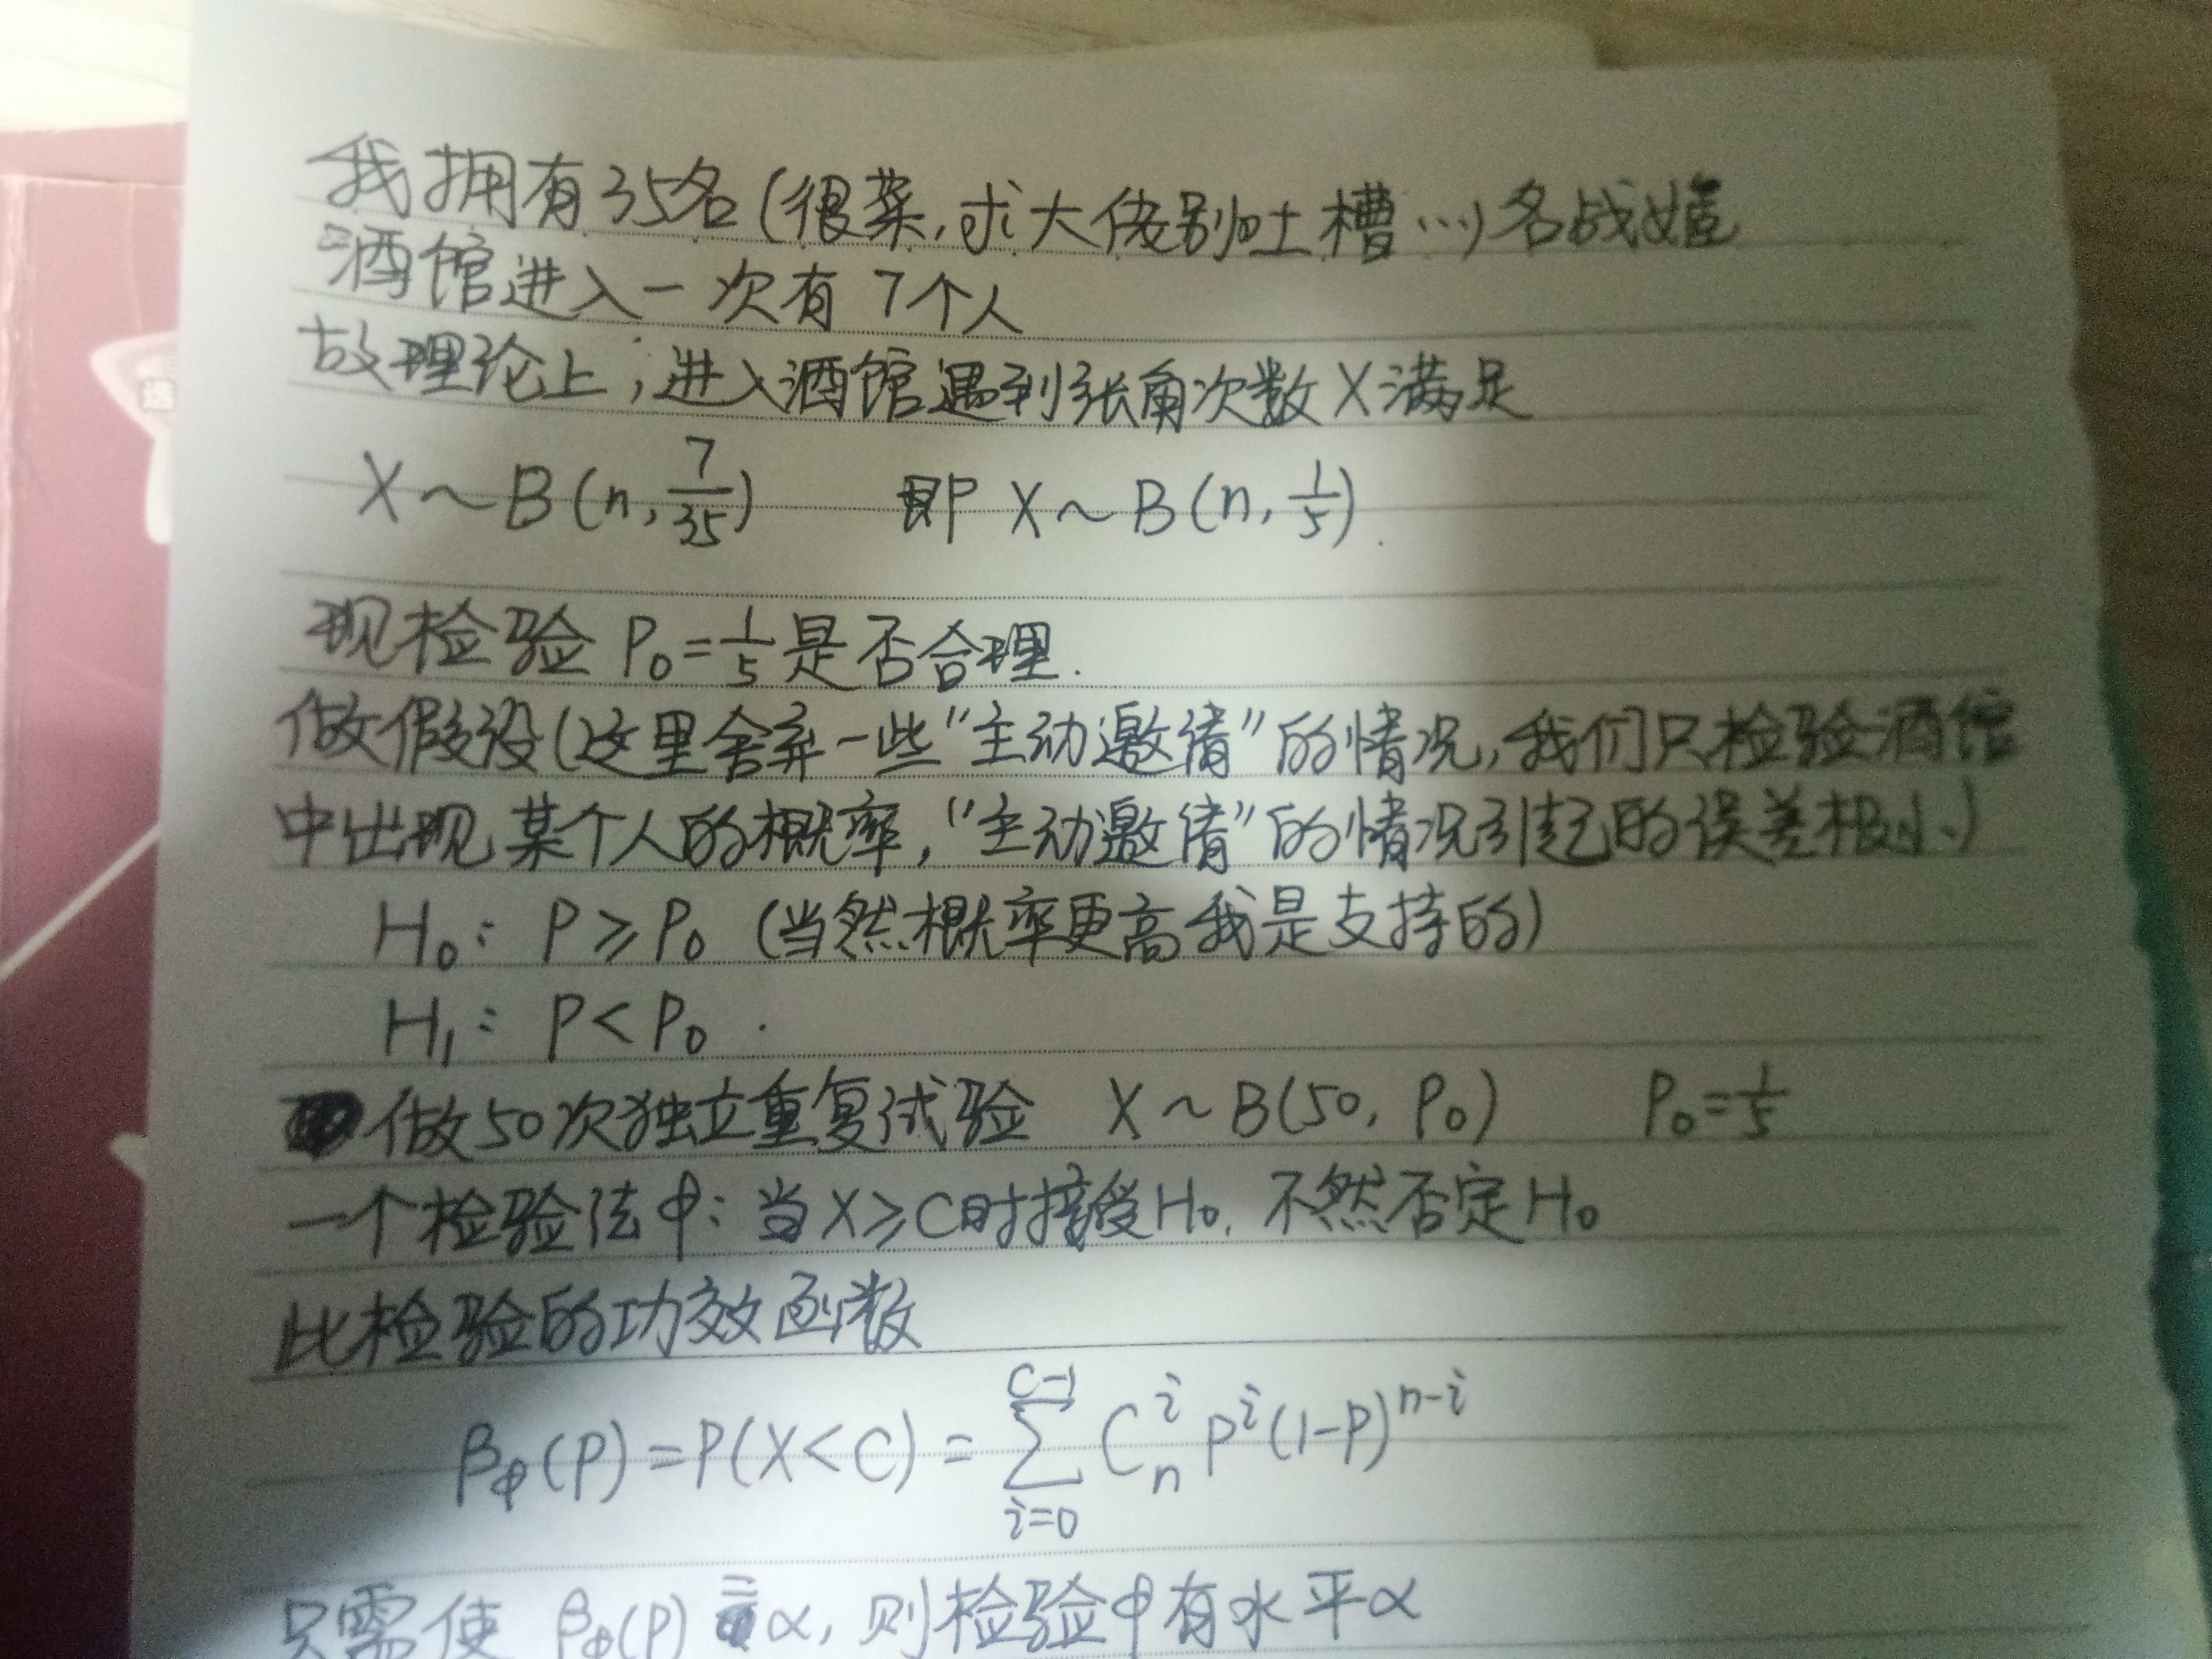 我拥有35名(很菜,求大佬别吐槽…)名战姬
酒馆进入一次有7个人
故理论上,进入酒馆遇到张角次数X满足
X~B(n, 7/35) 即 X~B(n, 1/5).
现检验 P₀=1/5是否合理.
做假设(这里舍弃一些"主动邀请"的情况,我们只检验酒馆
中出现某个人的概率,"主动邀请"的情况引起的误差极小)
H₀: P≥P₀ (当然概率更高我是支持的)
H₁: P<P₀.
做50次独立重复试验 X~B(50, P₀) P₀=1/5
一个检验法φ: 当X≥C时接受H₀, 不然否定H₀
此检验的功效函数
β_φ(P)=P(X<C)=∑_{i=0}^{C-1} C_n^i P^i(1-P)^{n-i}
只需使 β_φ(P)=α, 则检验φ有水平α